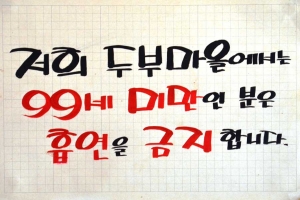 저희 두부마을에서는
99세 미만인 분은
흡연을 금지합니다.